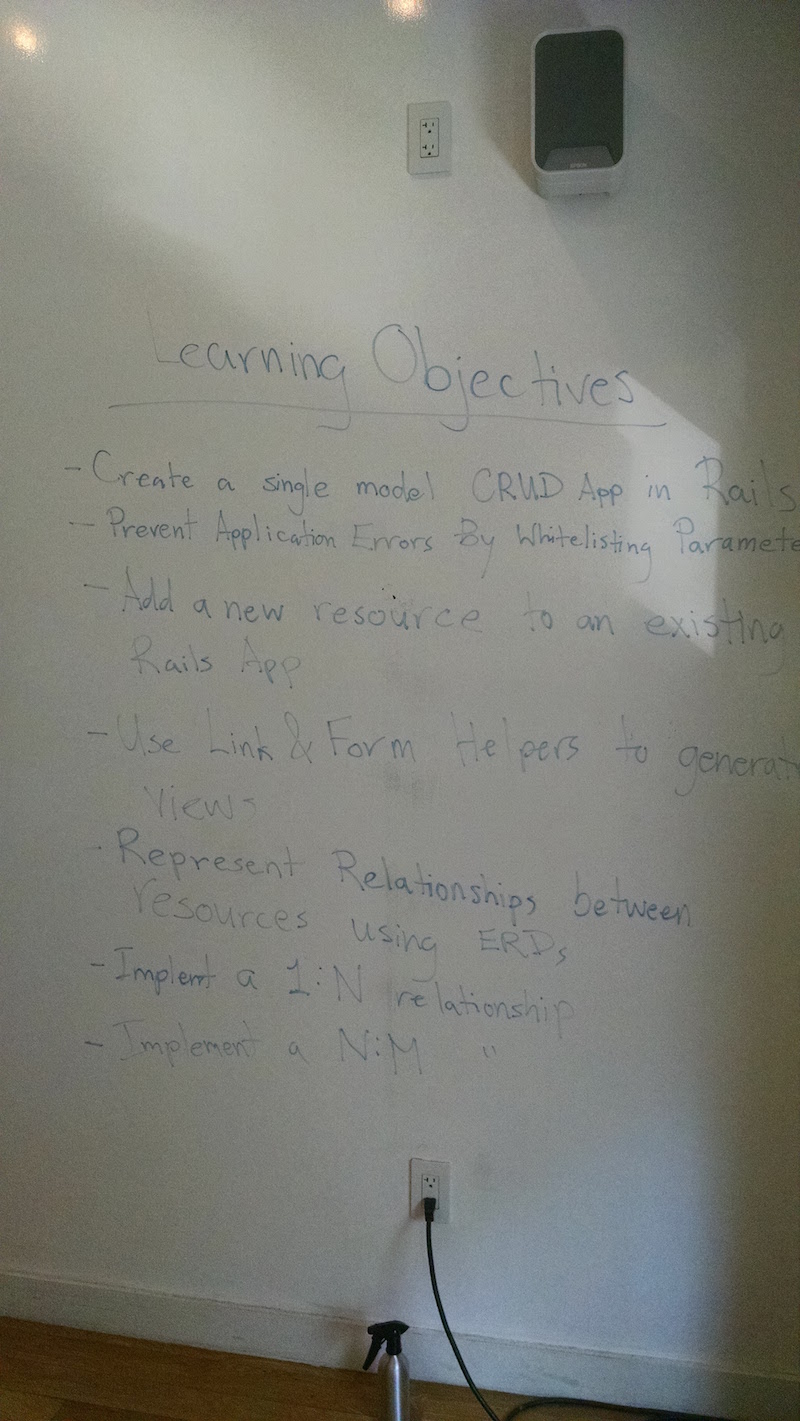 Learning Objectives
- Create a single model CRUD App in Rails
- Prevent Application Errors By Whitelisting Paramete
- Add a new resource to an existing
Rails App
- Use Link & Form Helpers to generat
Views
- Represent Relationships between
resources using ERDs
- Implemt a 1:N relationship
- Implement a N:M "